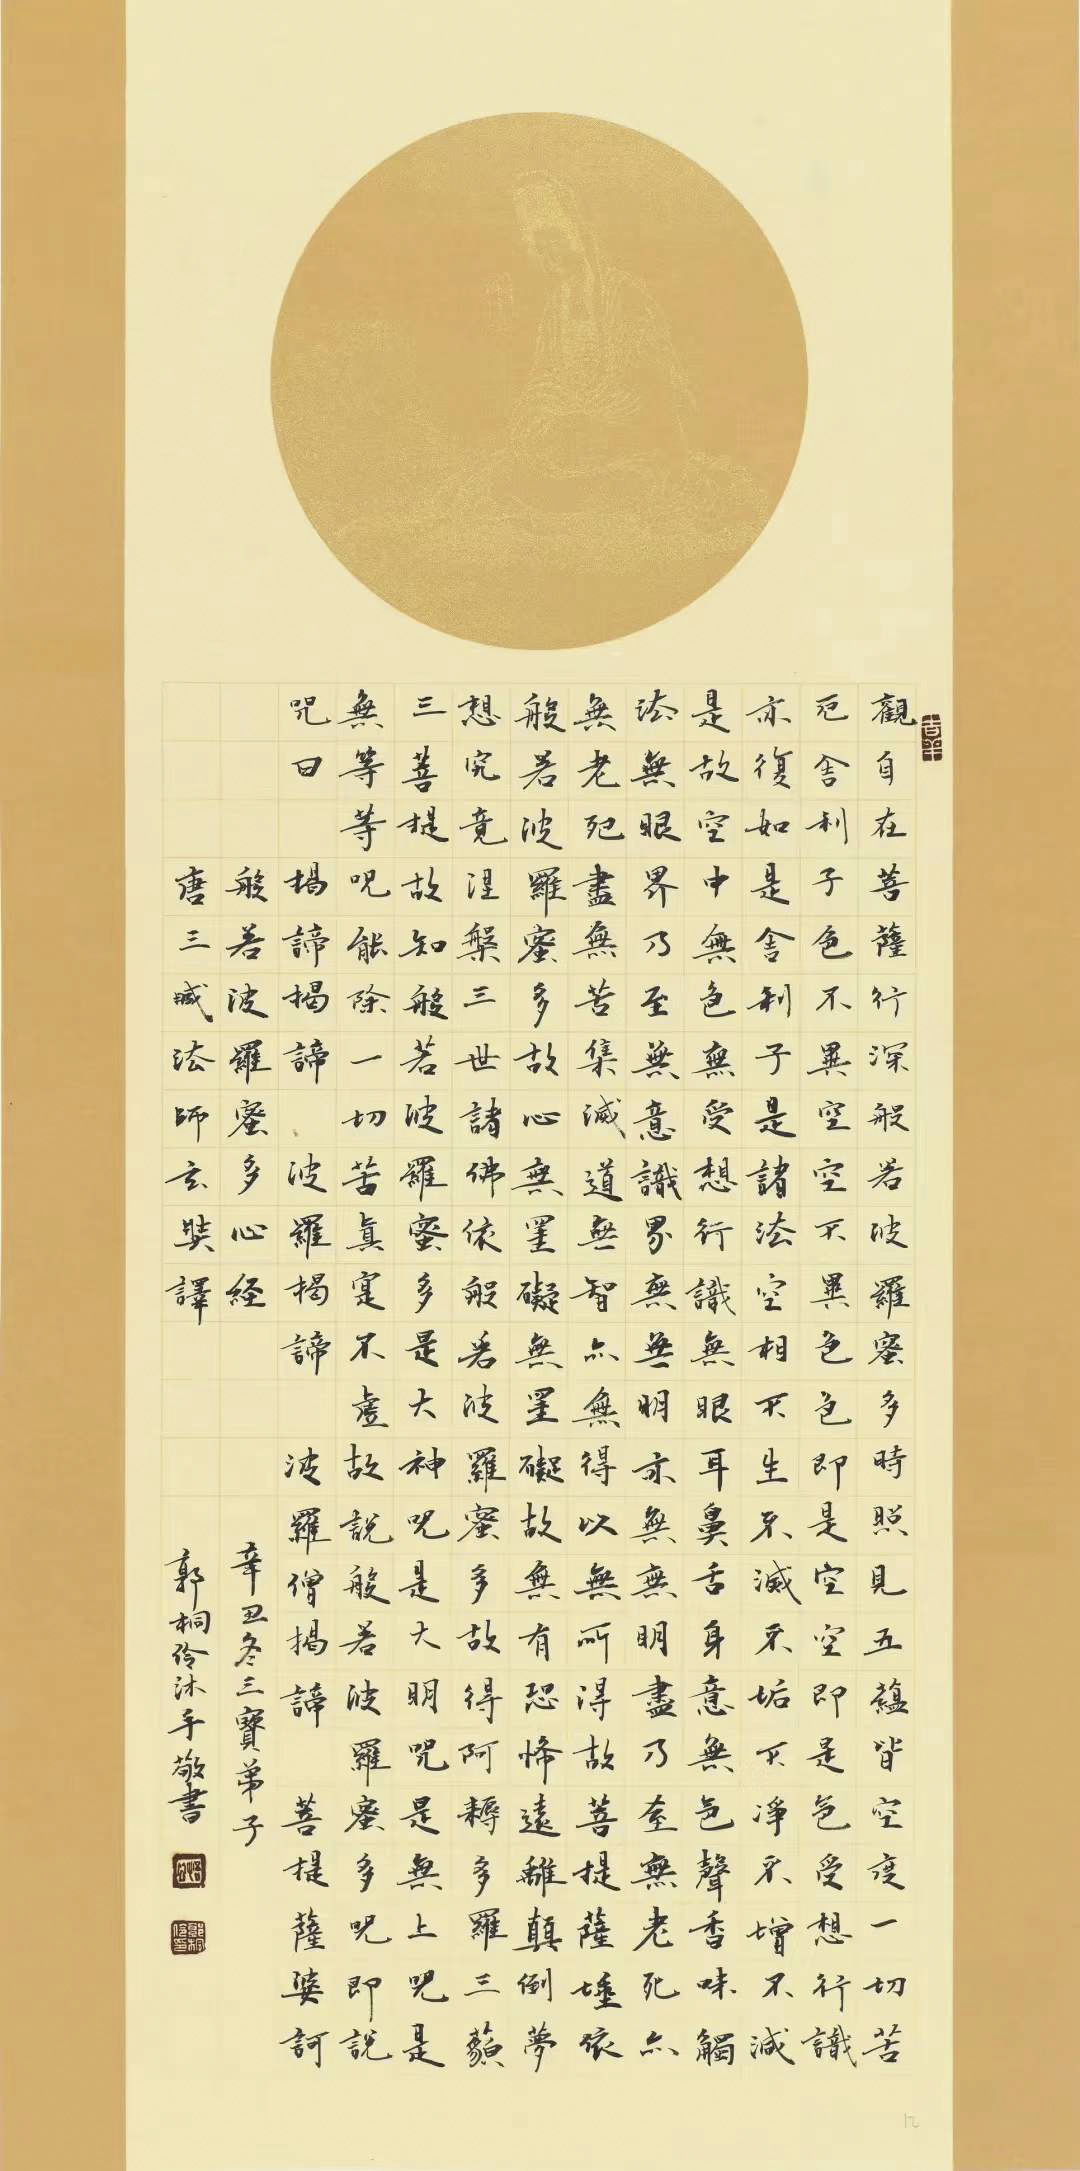 觀自在菩薩行深般若波羅蜜多時照見五蘊皆空度一切苦
厄舍利子色不異空空不異色色即是空空即是色受想行識
亦復如是舍利子是諸法空相不生不滅不垢不淨不增不減
是故空中無色無受想行識無眼耳鼻舌身意無色聲香味觸
法無眼界乃至無意識界無無明亦無無明盡乃至無老死亦
無老死盡無苦集滅道無智亦無得以無所得故菩提薩埵依
般若波羅蜜多故心無罣礙無罣礙故無有恐怖遠離顛倒夢
想究竟涅槃三世諸佛依般若波羅蜜多故得阿耨多羅三藐
三菩提故知般若波羅蜜多是大神咒是大明咒是無上咒是
無等等咒能除一切苦真寔不虛故說般若波羅蜜多咒即說
咒曰 揭諦揭諦 波羅揭諦 波羅僧揭諦 菩提薩婆訶
般若波羅蜜多心経
唐三臧法師玄奘譯
辛丑冬三寶弟子
郭桐伶沐手敬書